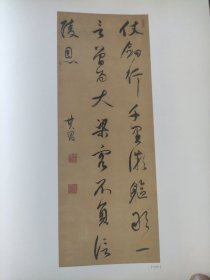 仗劍行千里微軀敢一
言曾為大梁客不負信
陵恩
其昌